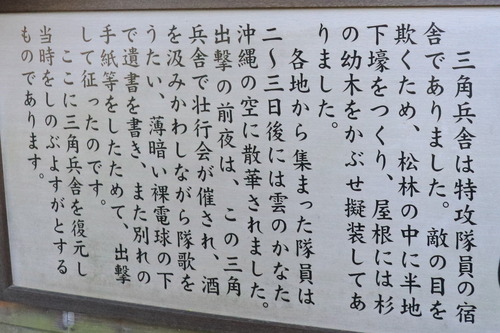 三角兵舎は特攻隊員の宿
舎でありました。敵の目を
欺くため、松林の中に半地
下壕をつくり、屋根には杉
の幼木をかぶせ擬装してあ
りました。
各地から集まった隊員は
二〜三日後には雲のかなた
沖縄の空に散華されました。
出撃の前夜は、この三角
兵舎で壮行会が催され、酒
を汲みかわしながら隊歌を
うたい、薄暗い裸電球の下
で遺書を書き、また別れの
手紙等をしたためて、出撃
して征ったのです。
ここに三角兵舎を復元し
当時をしのぶよすがとする
ものであります。